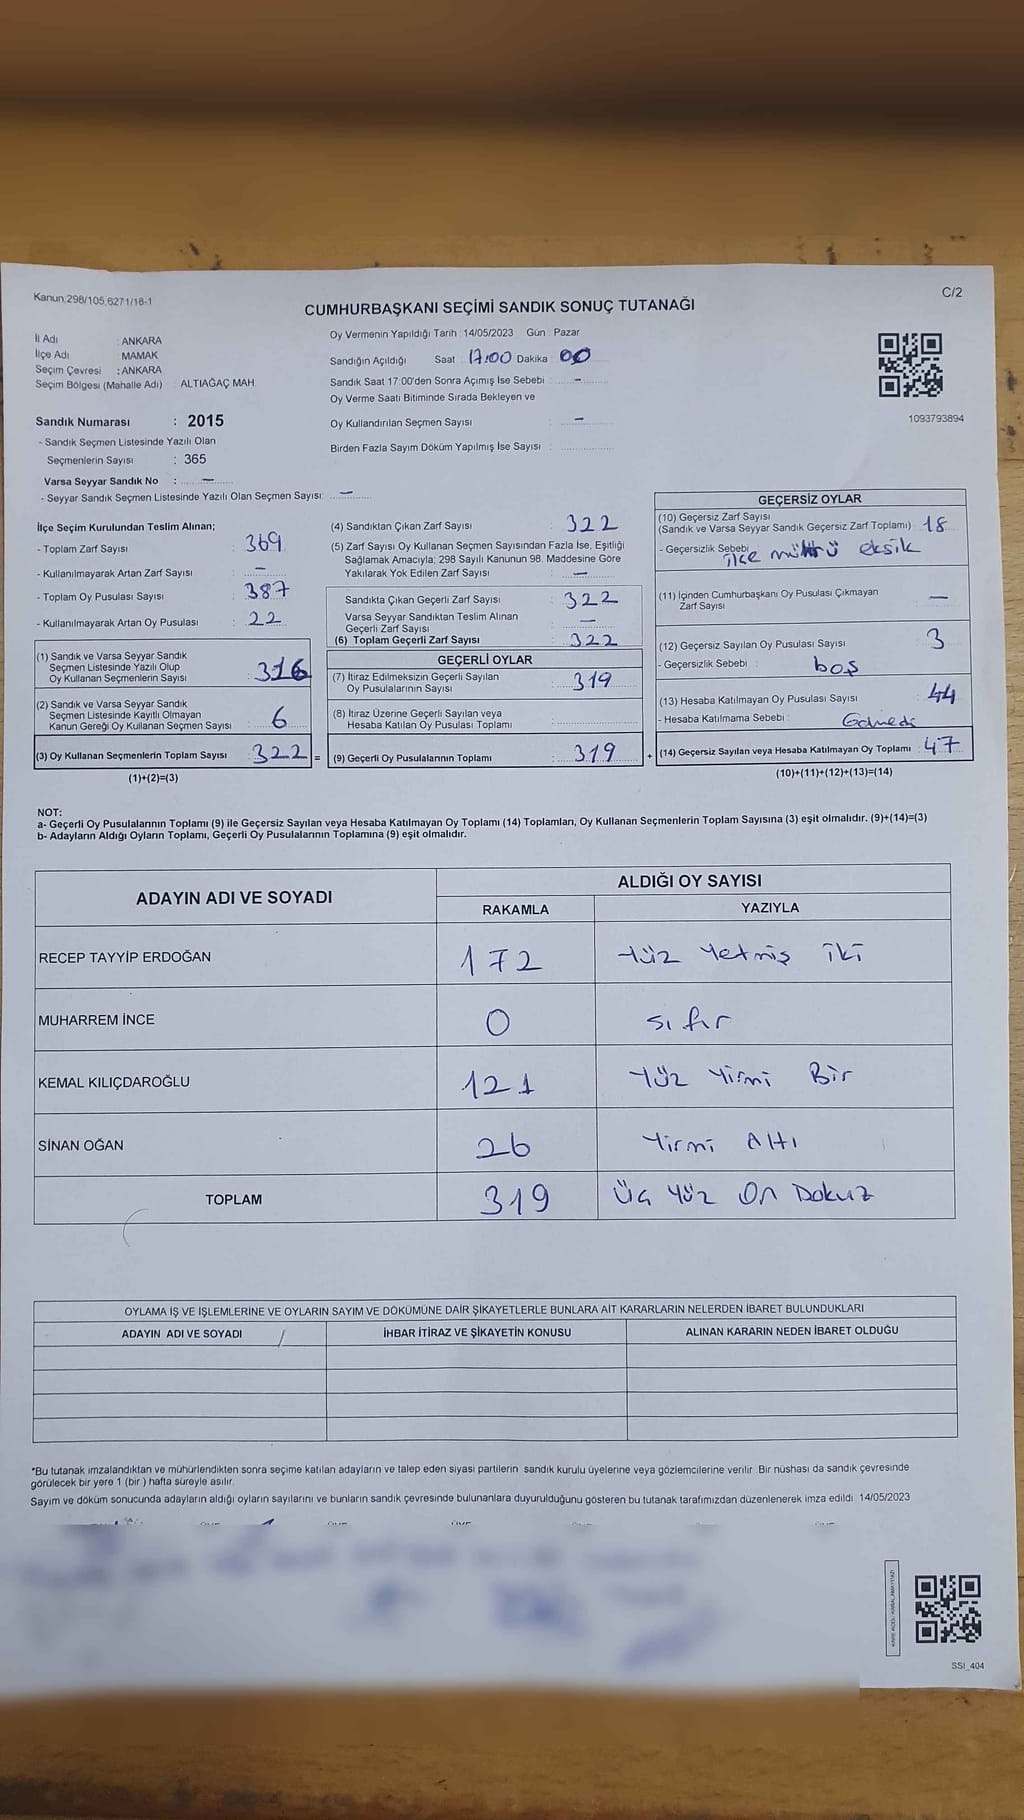 Kanun;298/105,6271/18-1
C/2
CUMHURBAŞKANI SEÇİMİ SANDIK SONUÇ TUTANAĞI
İl Adı : ANKARA
İlçe Adı : MAMAK
Seçim Çevresi : ANKARA
Seçim Bölgesi (Mahalle Adı) : ALTIAĞAÇ MAH
Oy Vermenin Yapıldığı Tarih : 14/05/2023 Gün : Pazar
Sandığın Açıldığı Saat : 17:00 Dakika : 00
Sandık Saat 17:00'den Sonra Açımış İse Sebebi : -
Oy Verme Saati Bitiminde Sırada Bekleyen ve
Oy Kullandırılan Seçmen Sayısı : -
Birden Fazla Sayım Döküm Yapılmış İse Sayısı :
1093793894
Sandık Numarası : 2015
- Sandık Seçmen Listesinde Yazılı Olan
Seçmenlerin Sayısı : 365
Varsa Seyyar Sandık No : -
- Seyyar Sandık Seçmen Listesinde Yazılı Olan Seçmen Sayısı: -
İlçe Seçim Kurulundan Teslim Alınan;
- Toplam Zarf Sayısı : 369
- Kullanılmayarak Artan Zarf Sayısı : -
- Toplam Oy Pusulası Sayısı : 387
- Kullanılmayarak Artan Oy Pusulası : 22
(1) Sandık ve Varsa Seyyar Sandık
Seçmen Listesinde Yazılı Olup
Oy Kullanan Seçmenlerin Sayısı : 316
(2) Sandık ve Varsa Seyyar Sandık
Seçmen Listesinde Kayıtlı Olmayan
Kanun Gereği Oy Kullanan Seçmen Sayısı : 6
(3) Oy Kullanan Seçmenlerin Toplam Sayısı : 322 =
(1)+(2)=(3)
(4) Sandıktan Çıkan Zarf Sayısı : 322
(5) Zarf Sayısı Oy Kullanan Seçmen Sayısından Fazla İse, Eşitliği
Sağlamak Amacıyla; 298 Sayılı Kanunun 98. Maddesine Göre
Yakılarak Yok Edilen Zarf Sayısı : -
Sandıkta Çıkan Geçerli Zarf Sayısı : 322
Varsa Seyyar Sandıktan Teslim Alınan
Geçerli Zarf Sayısı : -
(6) Toplam Geçerli Zarf Sayısı : 322
GEÇERLİ OYLAR
(7) İtiraz Edilmeksizin Geçerli Sayılan
Oy Pusulalarının Sayısı : 319
(8) İtiraz Üzerine Geçerli Sayılan veya
Hesaba Katılan Oy Pusulası Toplamı :
(9) Geçerli Oy Pusulalarının Toplamı : 319 +
GEÇERSİZ OYLAR
(10) Geçersiz Zarf Sayısı
(Sandık ve Varsa Seyyar Sandık Geçersiz Zarf Toplamı) : 18
- Geçersizlik Sebebi : ilçe mührü eksik
(11) İçinden Cumhurbaşkanı Oy Pusulası Çıkmayan
Zarf Sayısı -
(12) Geçersiz Sayılan Oy Pusulası Sayısı 3
- Geçersizlik Sebebi : boş
(13) Hesaba Katılmayan Oy Pusulası Sayısı 44
- Hesaba Katılmama Sebebi :
(14) Geçersiz Sayılan veya Hesaba Katılmayan Oy Toplamı : 47
(10)+(11)+(12)+(13)=(14)
NOT:
a- Geçerli Oy Pusulalarının Toplamı (9) ile Geçersiz Sayılan veya Hesaba Katılmayan Oy Toplamı (14) Toplamları, Oy Kullanan Seçmenlerin Toplam Sayısına (3) eşit olmalıdır. (9)+(14)=(3)
b- Adayların Aldığı Oyların Toplamı, Geçerli Oy Pusulalarının Toplamına (9) eşit olmalıdır.
ADAYIN ADI VE SOYADI ALDIĞI OY SAYISI
RAKAMLA YAZIYLA
RECEP TAYYİP ERDOĞAN 172 Yüz Yetmiş iki
MUHARREM İNCE 0 sıfır
KEMAL KILIÇDAROĞLU 121 Yüz Yirmi Bir
SİNAN OĞAN 26 Yirmi Altı
TOPLAM 319 Üç Yüz On Dokuz
OYLAMA İŞ VE İŞLEMLERİNE VE OYLARIN SAYIM VE DÖKÜMÜNE DAİR ŞİKAYETLERLE BUNLARA AİT KARARLARIN NELERDEN İBARET BULUNDUKLARI
ADAYIN ADI VE SOYADI İHBAR İTİRAZ VE ŞİKAYETİN KONUSU ALINAN KARARIN NEDEN İBARET OLDUĞU
*Bu tutanak imzalandıktan ve mühürlendikten sonra seçime katılan adayların ve talep eden siyasi partilerin sandık kurulu üyelerine veya gözlemcilerine verilir. Bir nüshası da sandık çevresinde
görülecek bir yere 1 (bir) hafta süreyle asılır.
Sayım ve döküm sonucunda adayların aldığı oyların sayılarını ve bunların sandık çevresinde bulunanlara duyurulduğunu gösteren bu tutanak tarafımızdan düzenlenerek imza edildi. 14/05/2023
SSI_404